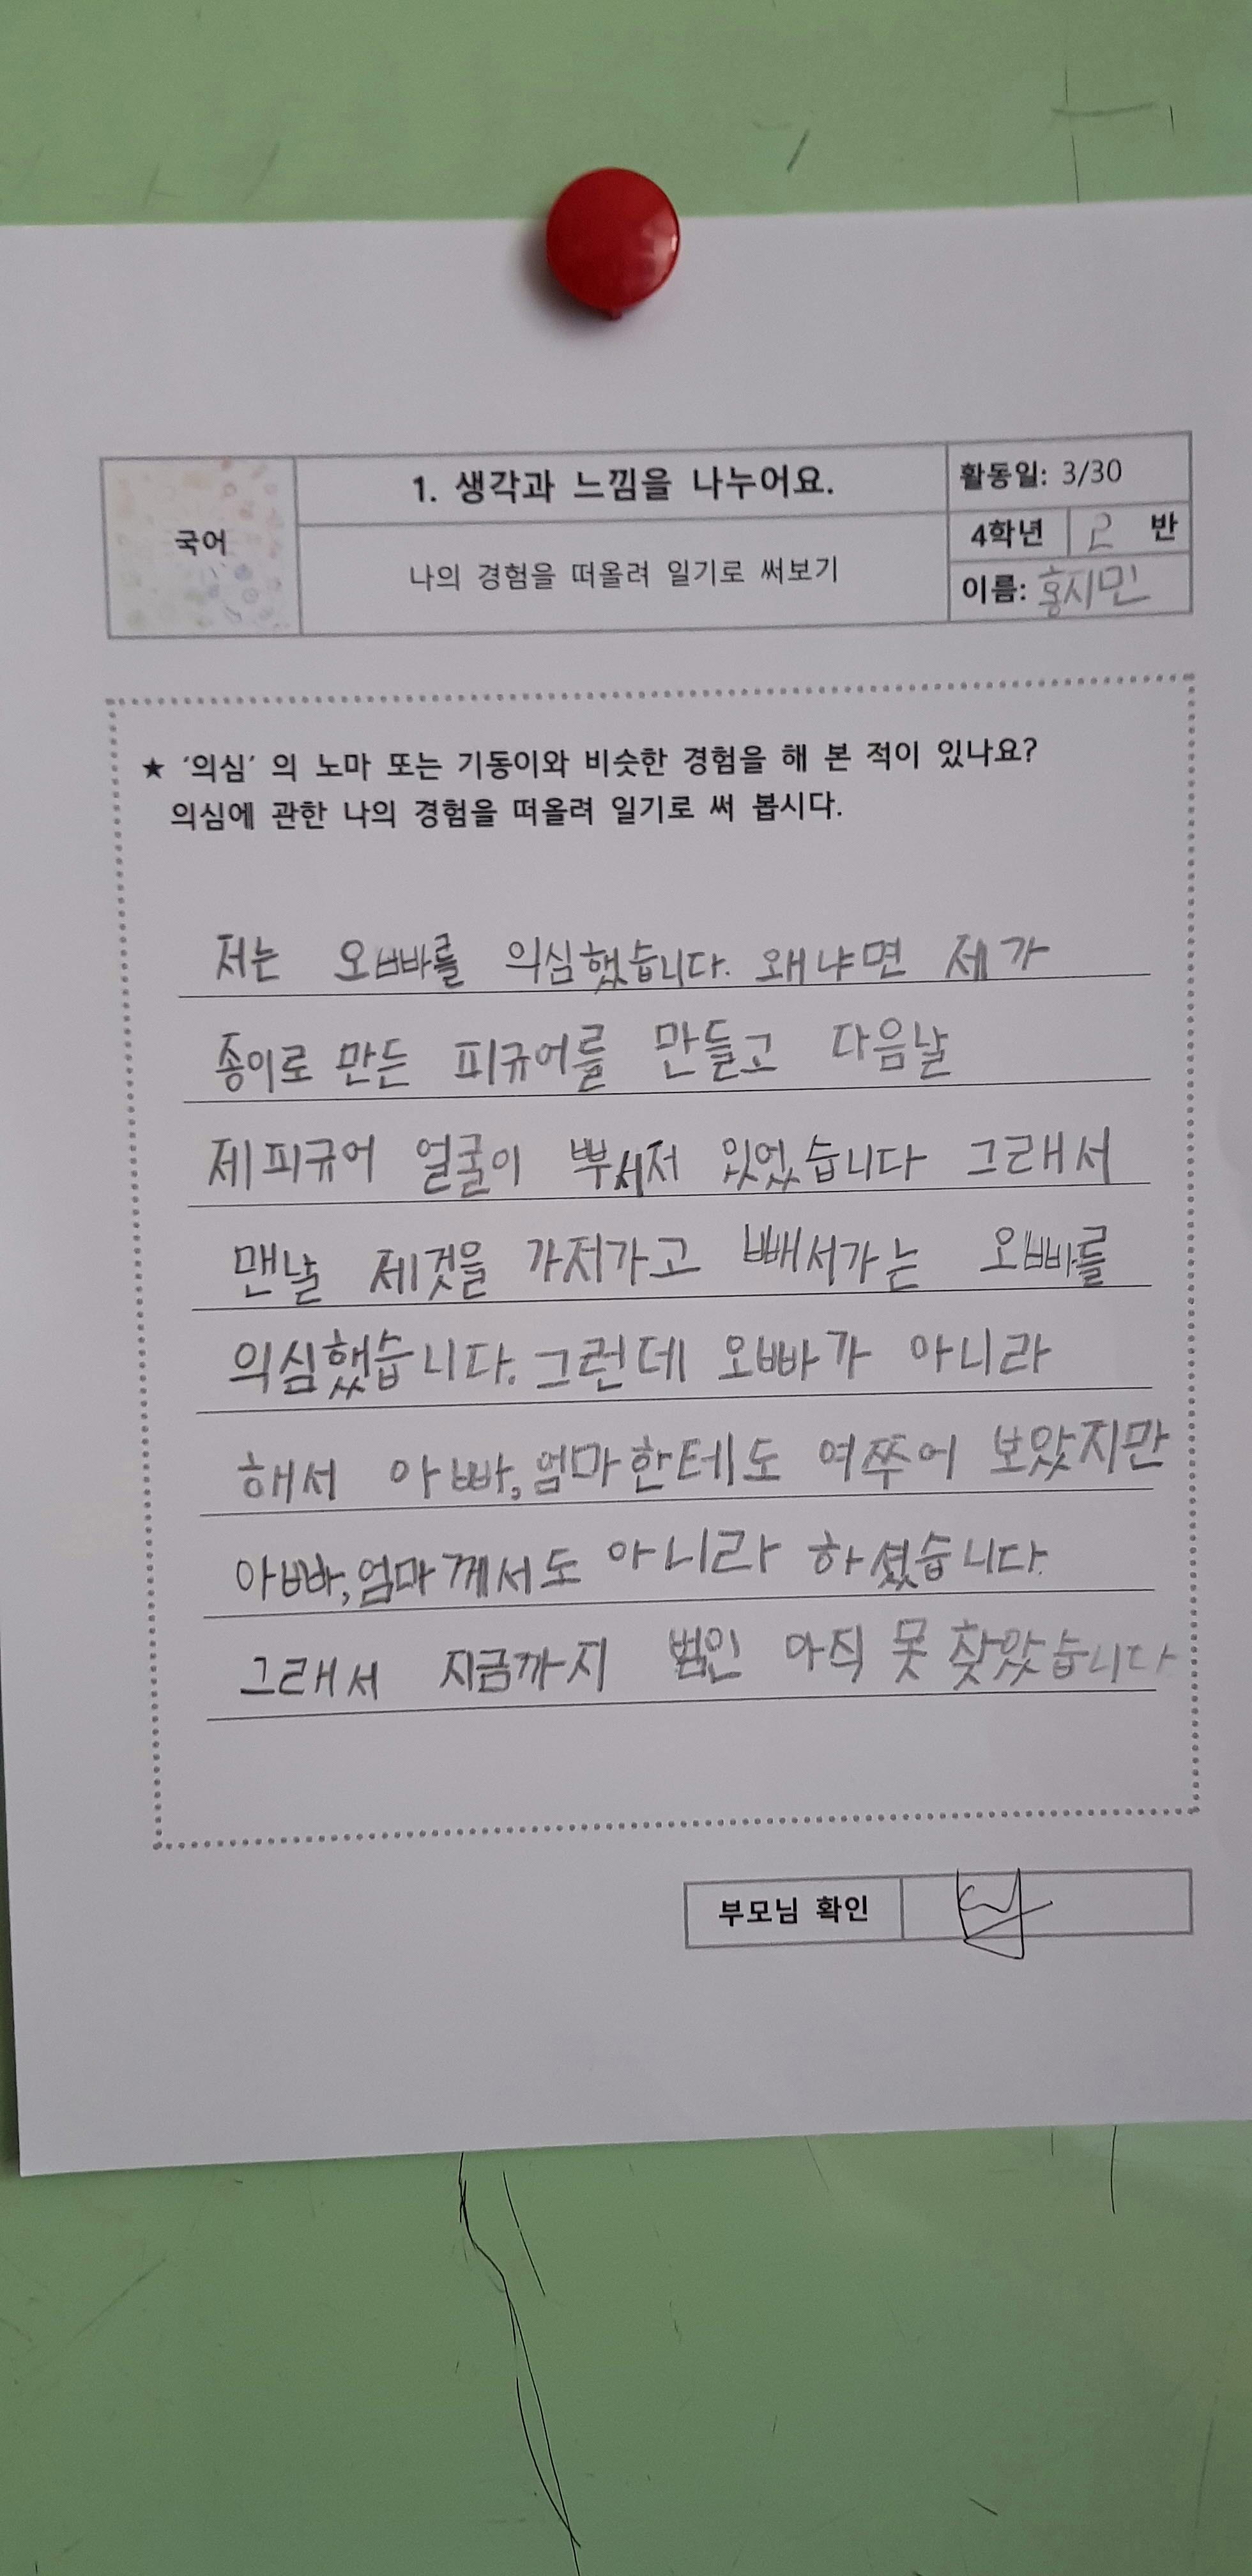 국어
1. 생각과 느낌을 나누어요.
나의 경험을 떠올려 일기로 써보기
활동일: 3/30
4학년 2 반
이름: 홍시민
★ '의심' 의 노마 또는 기동이와 비슷한 경험을 해 본 적이 있나요?
의심에 관한 나의 경험을 떠올려 일기로 써 봅시다.
저는 오빠를 의심했습니다. 왜냐면 제가
종이로 만든 피규어를 만들고 다음날
제피규어 얼굴이 뿌서저 있었습니다 그래서
맨날 제것을 가저가고 빼서가는 오빠를
의심했습니다. 그런데 오빠가 아니라
해서 아빠, 엄마한테도 여쭈어 보았지만
아빠, 엄마께서도 아니라 하셨습니다.
그래서 지금까지 범인 아직 못 찾았습니다
부모님 확인